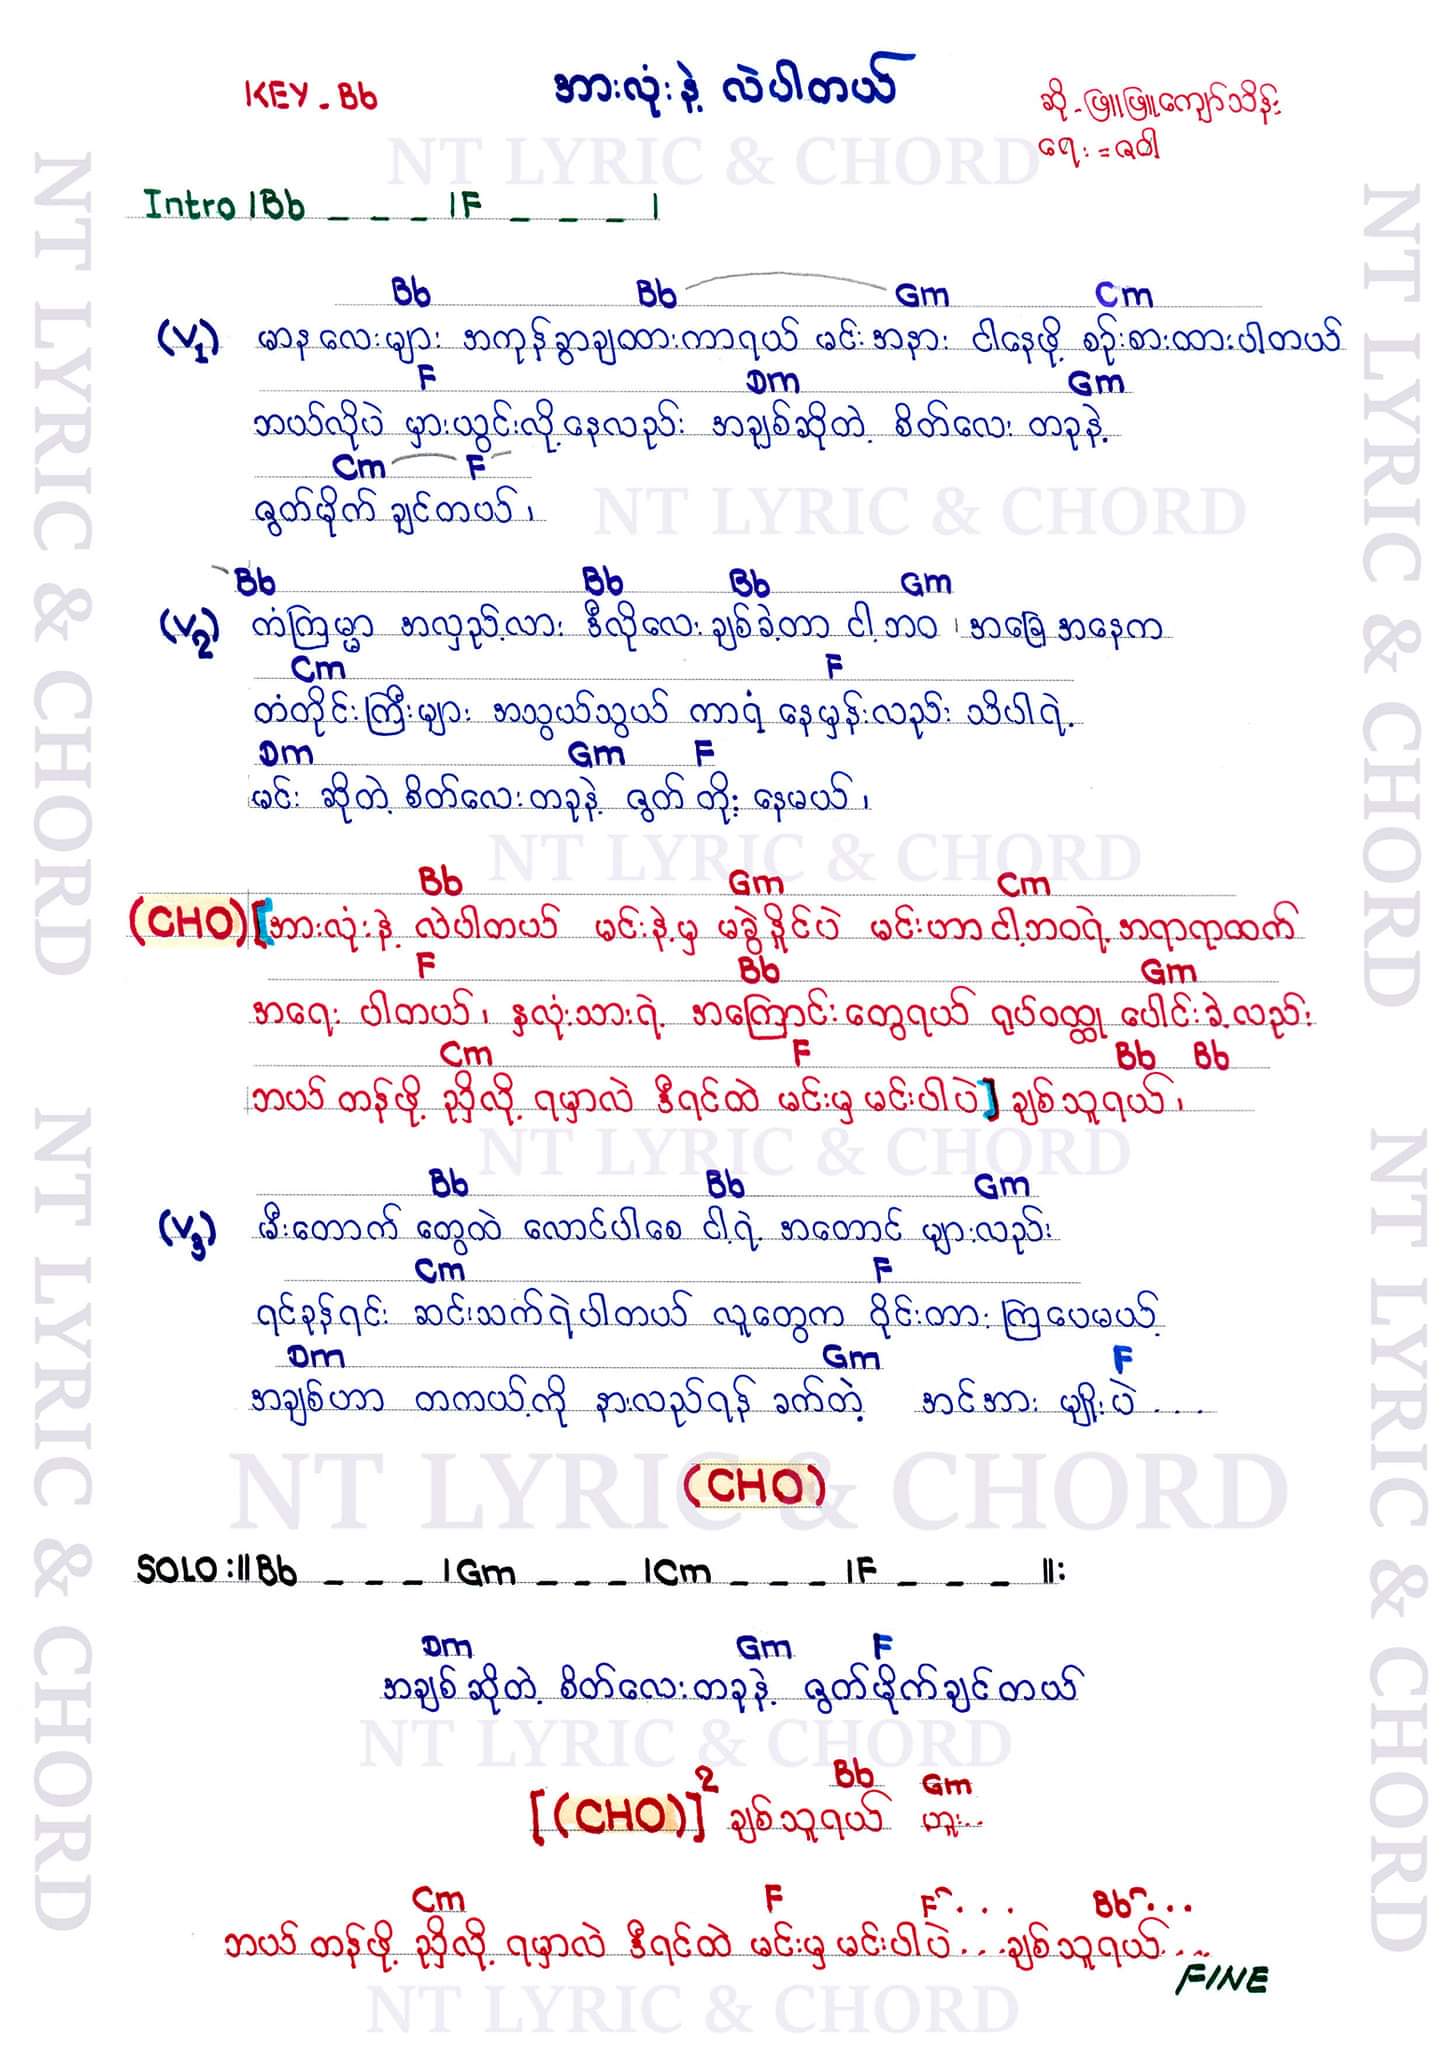 KEY - Bb
အားလုံးနဲ့ လဲပါတယ်
ဆို - ဖြူဖြူကျော်သိန်း
ရေး = ဇဝါ
NT LYRIC & CHORD
Intro |Bb _ _ _ |F _ _ _ |
Bb Bb Gm Cm
(V1) မာနလေးများ အကုန်ခွာချထားကာရယ် မင်းအနား ငါနေဖို့ စဉ်းစားထားပါတယ်
F Dm Gm
ဘယ်လိုပဲ မှားယွင်းလို့နေလည်း အချစ်ဆိုတဲ့ စိတ်လေး တခုနဲ့
Cm F
ဇွတ်မိုက် ချင်တယ်၊
NT LYRIC & CHORD
Bb Bb Bb Gm
(V2) ကံကြမ္မာ အလှည့်လား ဒီလိုလေးချစ်ခဲ့တာ ငါ့ဘဝ ၊ အခြေအနေက
Cm F
တံတိုင်းကြီးများ အသွယ်သွယ် ကာရံ နေမှန်းလည်း သိပါရဲ့
Dm Gm F
မင်း ဆိုတဲ့ စိတ်လေးတခုနဲ့ ဇွတ် တိုး နေမယ်၊
NT LYRIC & CHORD
Bb Gm Cm
(CHO) [အားလုံးနဲ့ လဲပါတယ် မင်းနဲ့မှ မခွဲနိုင်ပဲ မင်းဟာငါ့ဘဝရဲ့အရာရာထက်
F Bb Gm
အရေး ပါတယ်၊ နှလုံးသားရဲ့ အကြောင်းတွေရယ် ရုပ်ဝတ္ထု ပေါင်းခဲ့လည်း
Cm F Bb Bb
ဘယ် တန်ဖို့ ညှိလို့ ရမှာလဲ ဒီရင်ထဲ မင်းမှ မင်းပါပဲ] ချစ်သူရယ်၊
NT LYRIC & CHORD
Bb Bb Gm
(V3) မီးတောက် တွေထဲ လောင်ပါစေ ငါ့ရဲ့ အတောင် များလည်း
Cm F
ရင်ခုန်ရင်း ဆင်းသက်ရဲပါတယ် လူတွေက ဝိုင်းတားကြပေမယ့်
Dm Gm F
အချစ်ဟာ တကယ့်ကို နားလည်ရန် ခက်တဲ့ အင်အား မျိုးပဲ ....
(CHO)
NT LYRIC & CHORD
SOLO :||Bb _ _ _ |Gm _ _ _ |Cm _ _ _ |F _ _ _ ||:
Dm Gm F
အချစ်ဆိုတဲ့ စိတ်လေးတခုနဲ့ ဇွတ်မိုက်ချင်တယ်
NT LYRIC & CHORD
Bb Gm
[(CHO)]2 ချစ်သူရယ် ဟူး..
Cm F F ... Bb ...
ဘယ် တန်ဖို့ ညှိလို့ ရမှာလဲ ဒီရင်ထဲ မင်းမှ မင်းပါပဲ ...ချစ်သူရယ် ...
FINE
NT LYRIC & CHORD
NT LYRIC & CHORD
NT LYRIC & CHORD
NT LYRIC & CHORD
NT LYRIC & CHORD